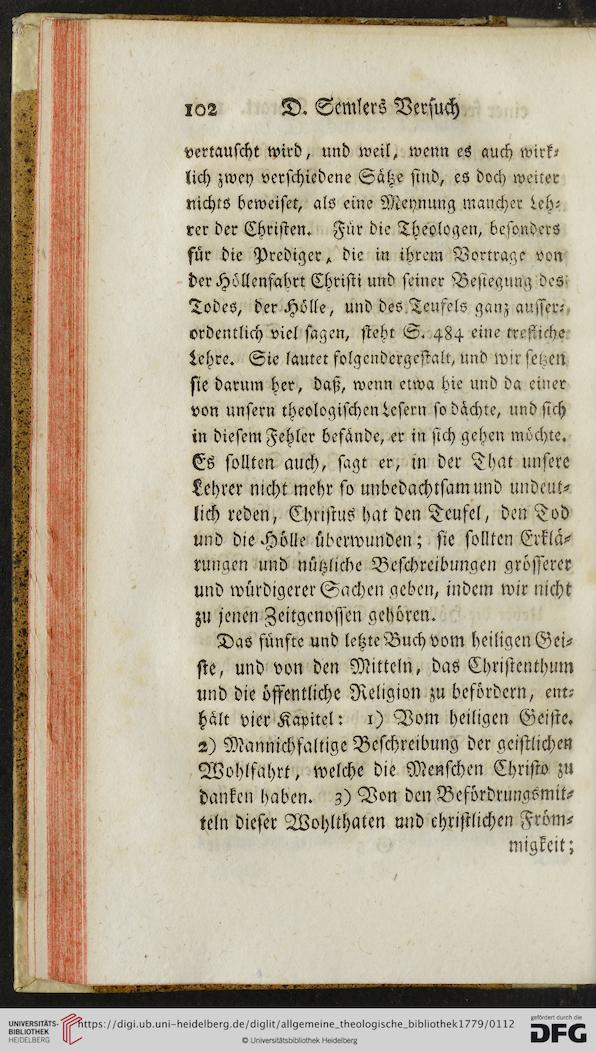 102 D. Semlers Versuch
vertauscht wird, und weil, wenn es auch wirk-
lich zwey verschiedene Sätze sind, es doch weiter
nichts beweiset, als eine Meynung mancher Leh-
rer der Christen. Für die Theologen, besonders
für die Prediger, die in ihrem Vortrage von
der Höllenfahrt Christi und seiner Besiegung des
Todes, der Hölle, und des Teufels ganz ausser-
ordentlich viel sagen, steht S. 484 eine trefliche
Lehre. Sie lautet folgendergestalt, und wir setzen
sie darum her, daß, wenn etwa hie und da einer
von unsern theologischen Lesern so dächte, und sich
in diesem Fehler befände, er in sich gehen möchte.
Es sollten auch, sagt er, in der That unsere
Lehrer nicht mehr so unbedachtsam und undeut-
lich reden, Christus hat den Teufel, den Tod
und die Hölle überwunden; sie sollten Erklä-
rungen und nützliche Beschreibungen grösserer
und würdigerer Sachen geben, indem wir nicht
zu jenen Zeitgenossen gehören.
Das fünfte und letzte Buch vom heiligen Gei-
ste, und von den Mitteln, das Christenthum
und die öffentliche Religion zu befördern, ent-
hält vier Kapitel: 1) Vom heiligen Geiste.
2) Mannichfaltige Beschreibung der geistlichen
Wohlfahrt, welche die Menschen Christo zu
danken haben. 3) Von den Befördrungsmit-
teln dieser Wohlthaten und christlichen Fröm-
migkeit;
UNIVERSITÄTS-
BIBLIOTHEK
HEIDELBERG
https://digi.ub.uni-heidelberg.de/diglit/allgemeine_theologische_bibliothek1779/0112
© Universitätsbibliothek Heidelberg
gefördert durch die
DFG